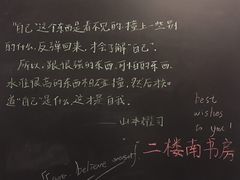 "自己"这个东西是看不见的,撞上一些别
的什么,反弹回来,才会了解"自己".
所以,跟很强的东西、可怕的东西、
水准很高的东西相碰撞,然后才知
道"自己"是什么,这才是自我.
——山本耀司
best
wishes
to you!
二楼南书房
believe